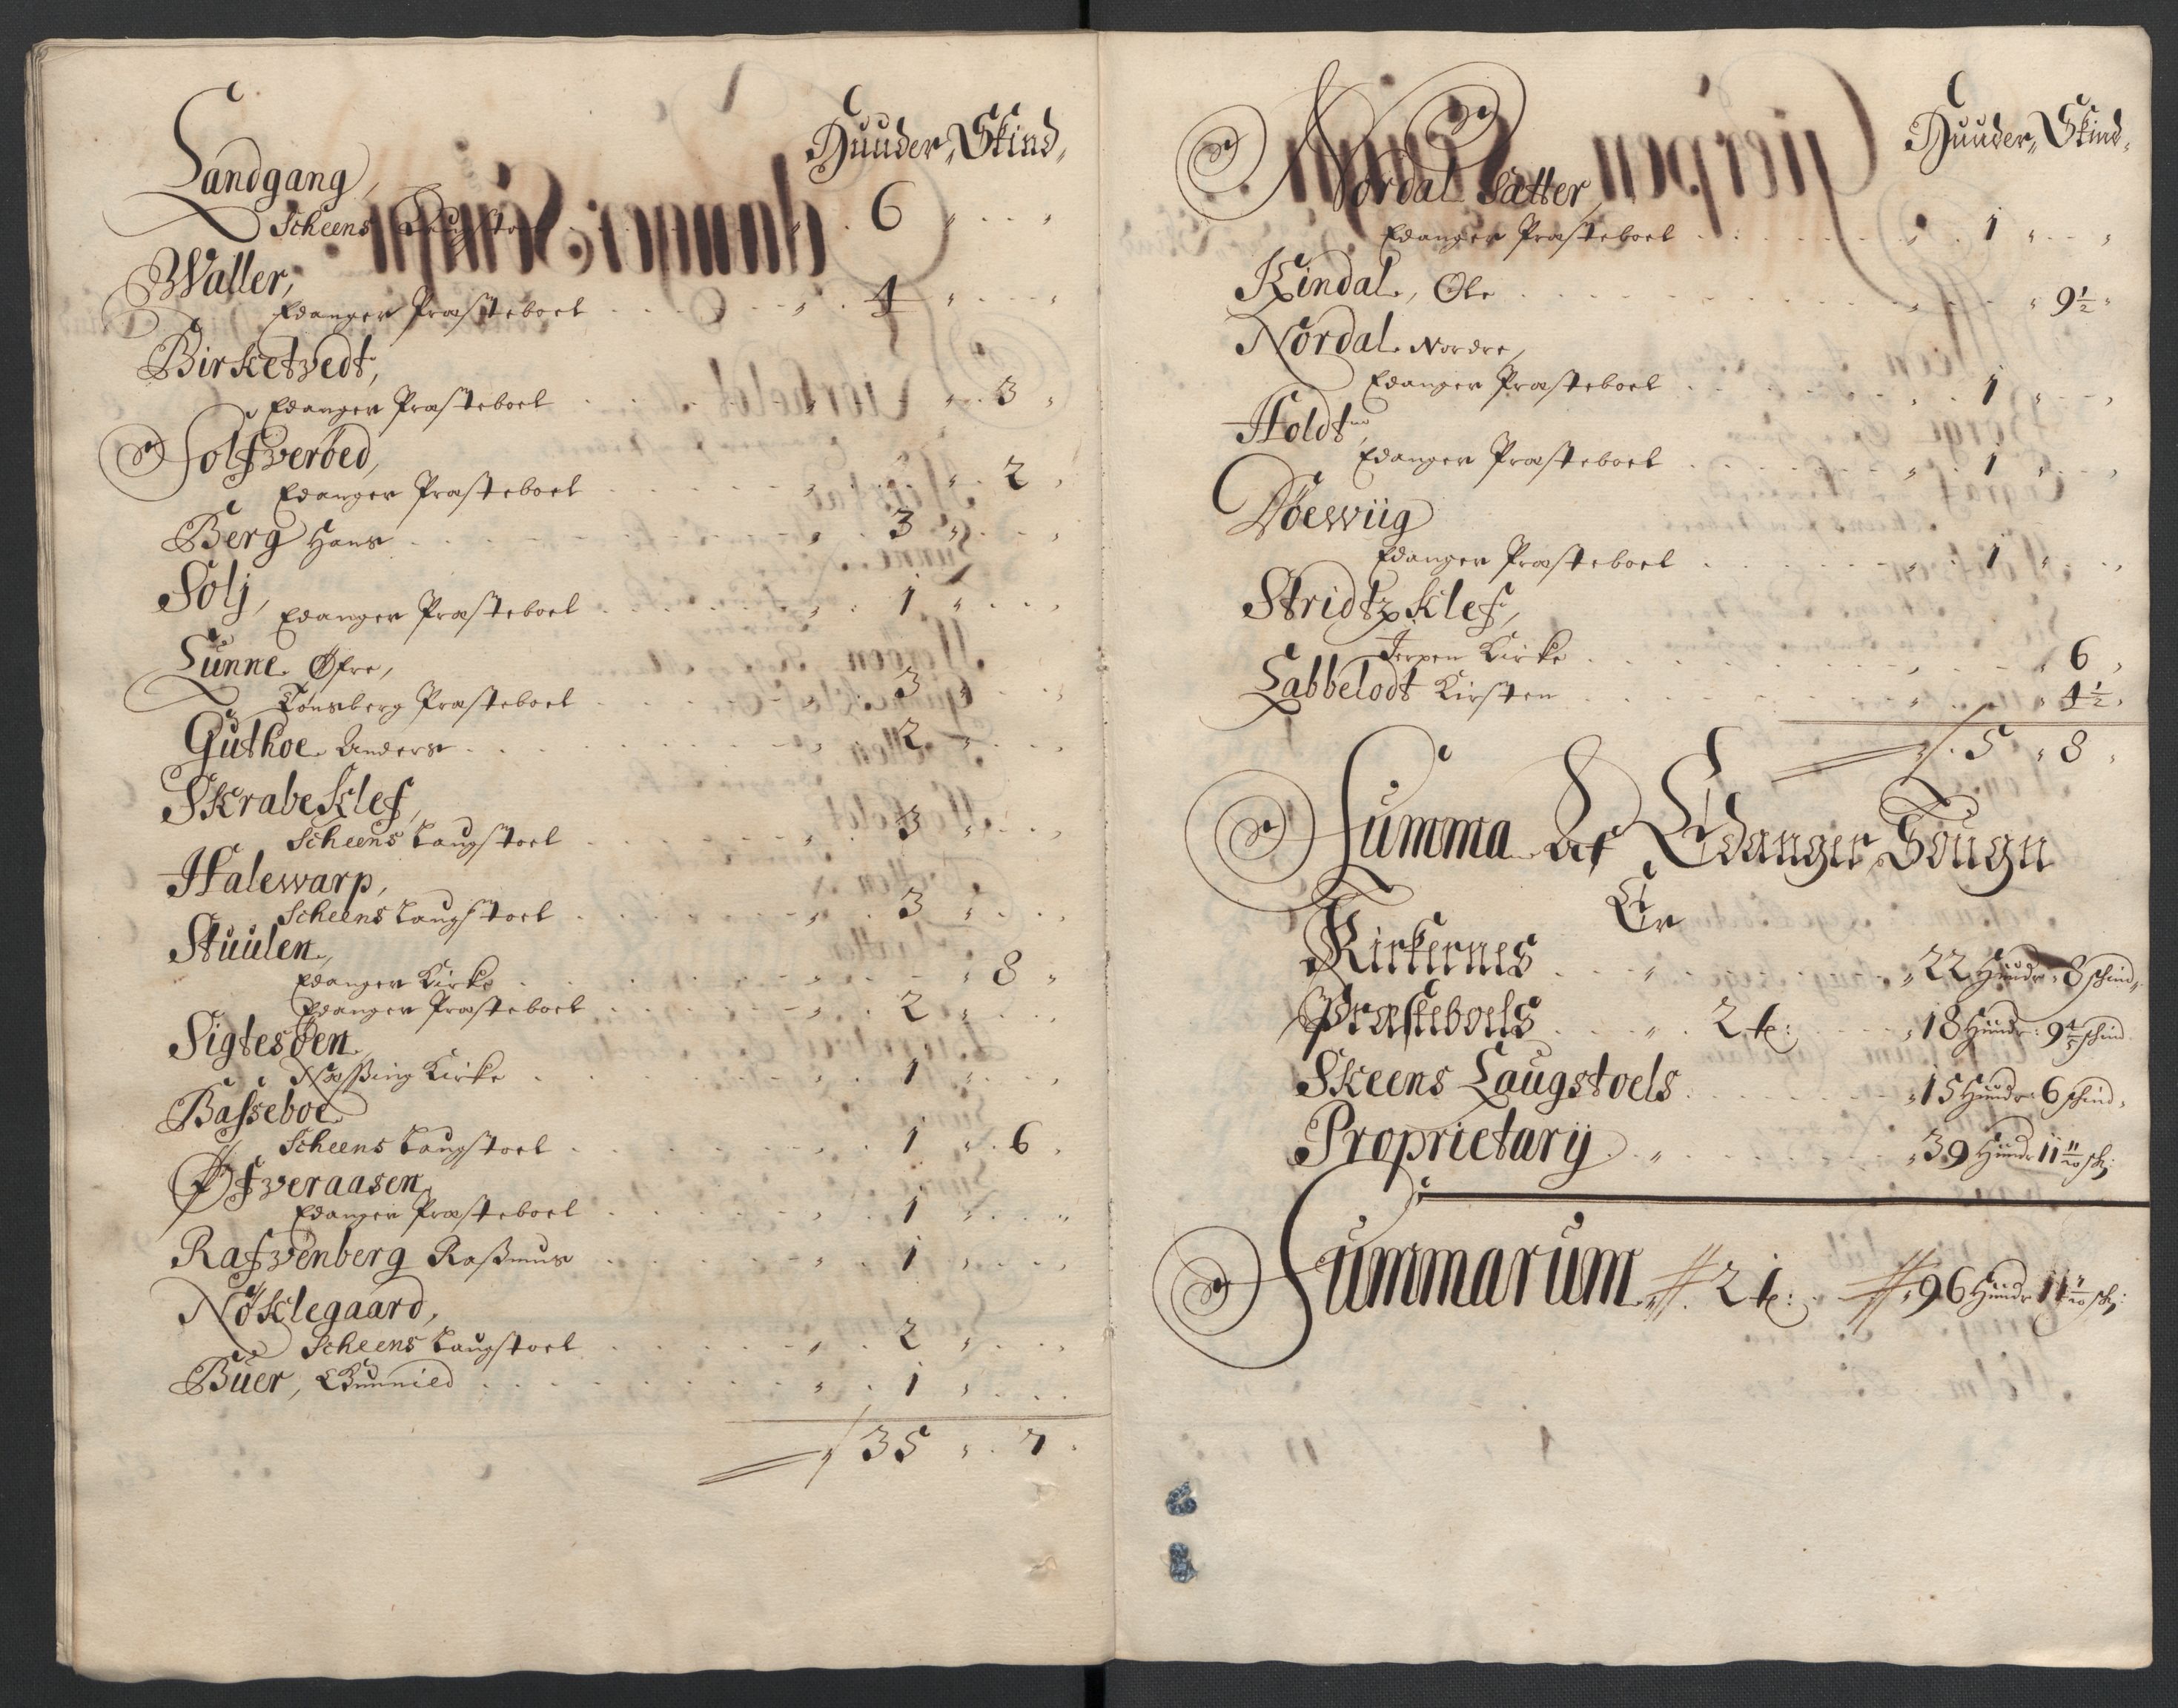 Huuder, Skind,
Landgang,
Scheens Laugstoel 6
Waller,
Edanger Præsteboel 4
Birketvedt,
Edanger Præsteboel 3
Solfverbed,
Edanger Præsteboel 2
Berg Hans 3
Solj, Edanger Præsteboel 1
Lunne Øfre,
Tønsberg Præsteboel 3
Guthoe Anders 2
Skrabeklef,
Scheens Laugstoel 3
Halewarp,
Scheens Laugstoel 3
Stuulen,
Edanger Kirke 8
Edanger Præsteboel 2
Sigtesøen
Næssing Kirke 1
Basseboe
Scheens Laugstoel 1 6
Øfveraasen,
Edanger Præsteboel 1
Rafvenberg Rasmus 1
Nøklegaard,
Scheens Laugstoel 2
Buer, Gunnild 1
35 7
Huuder, Skind,
Nordal Sætter,
Edanger Præsteboel 1
Kindal, Ole 9½
Nordal Nordre,
Edanger Præsteboel 1
Holdt
Edanger Præsteboel 1
Døewiig
Edanger Præsteboel 1
Stridtzklef,
Jerpen Kirke 6
Labbelodt Kirsten 4½
5 8
Summa Af Edanger Sougn
Er
Kirkernes 22 Huudr 8 skind
Præsteboels 2 t: 18 Huudr: 9 4/5 skind
Skeens Laugstoels 15 Huudr 6 skind,
Proprietarij 39 Huudr 11 11/20 sk:
Summarum 2 t: 96 Huudr 11 11/20 sk: